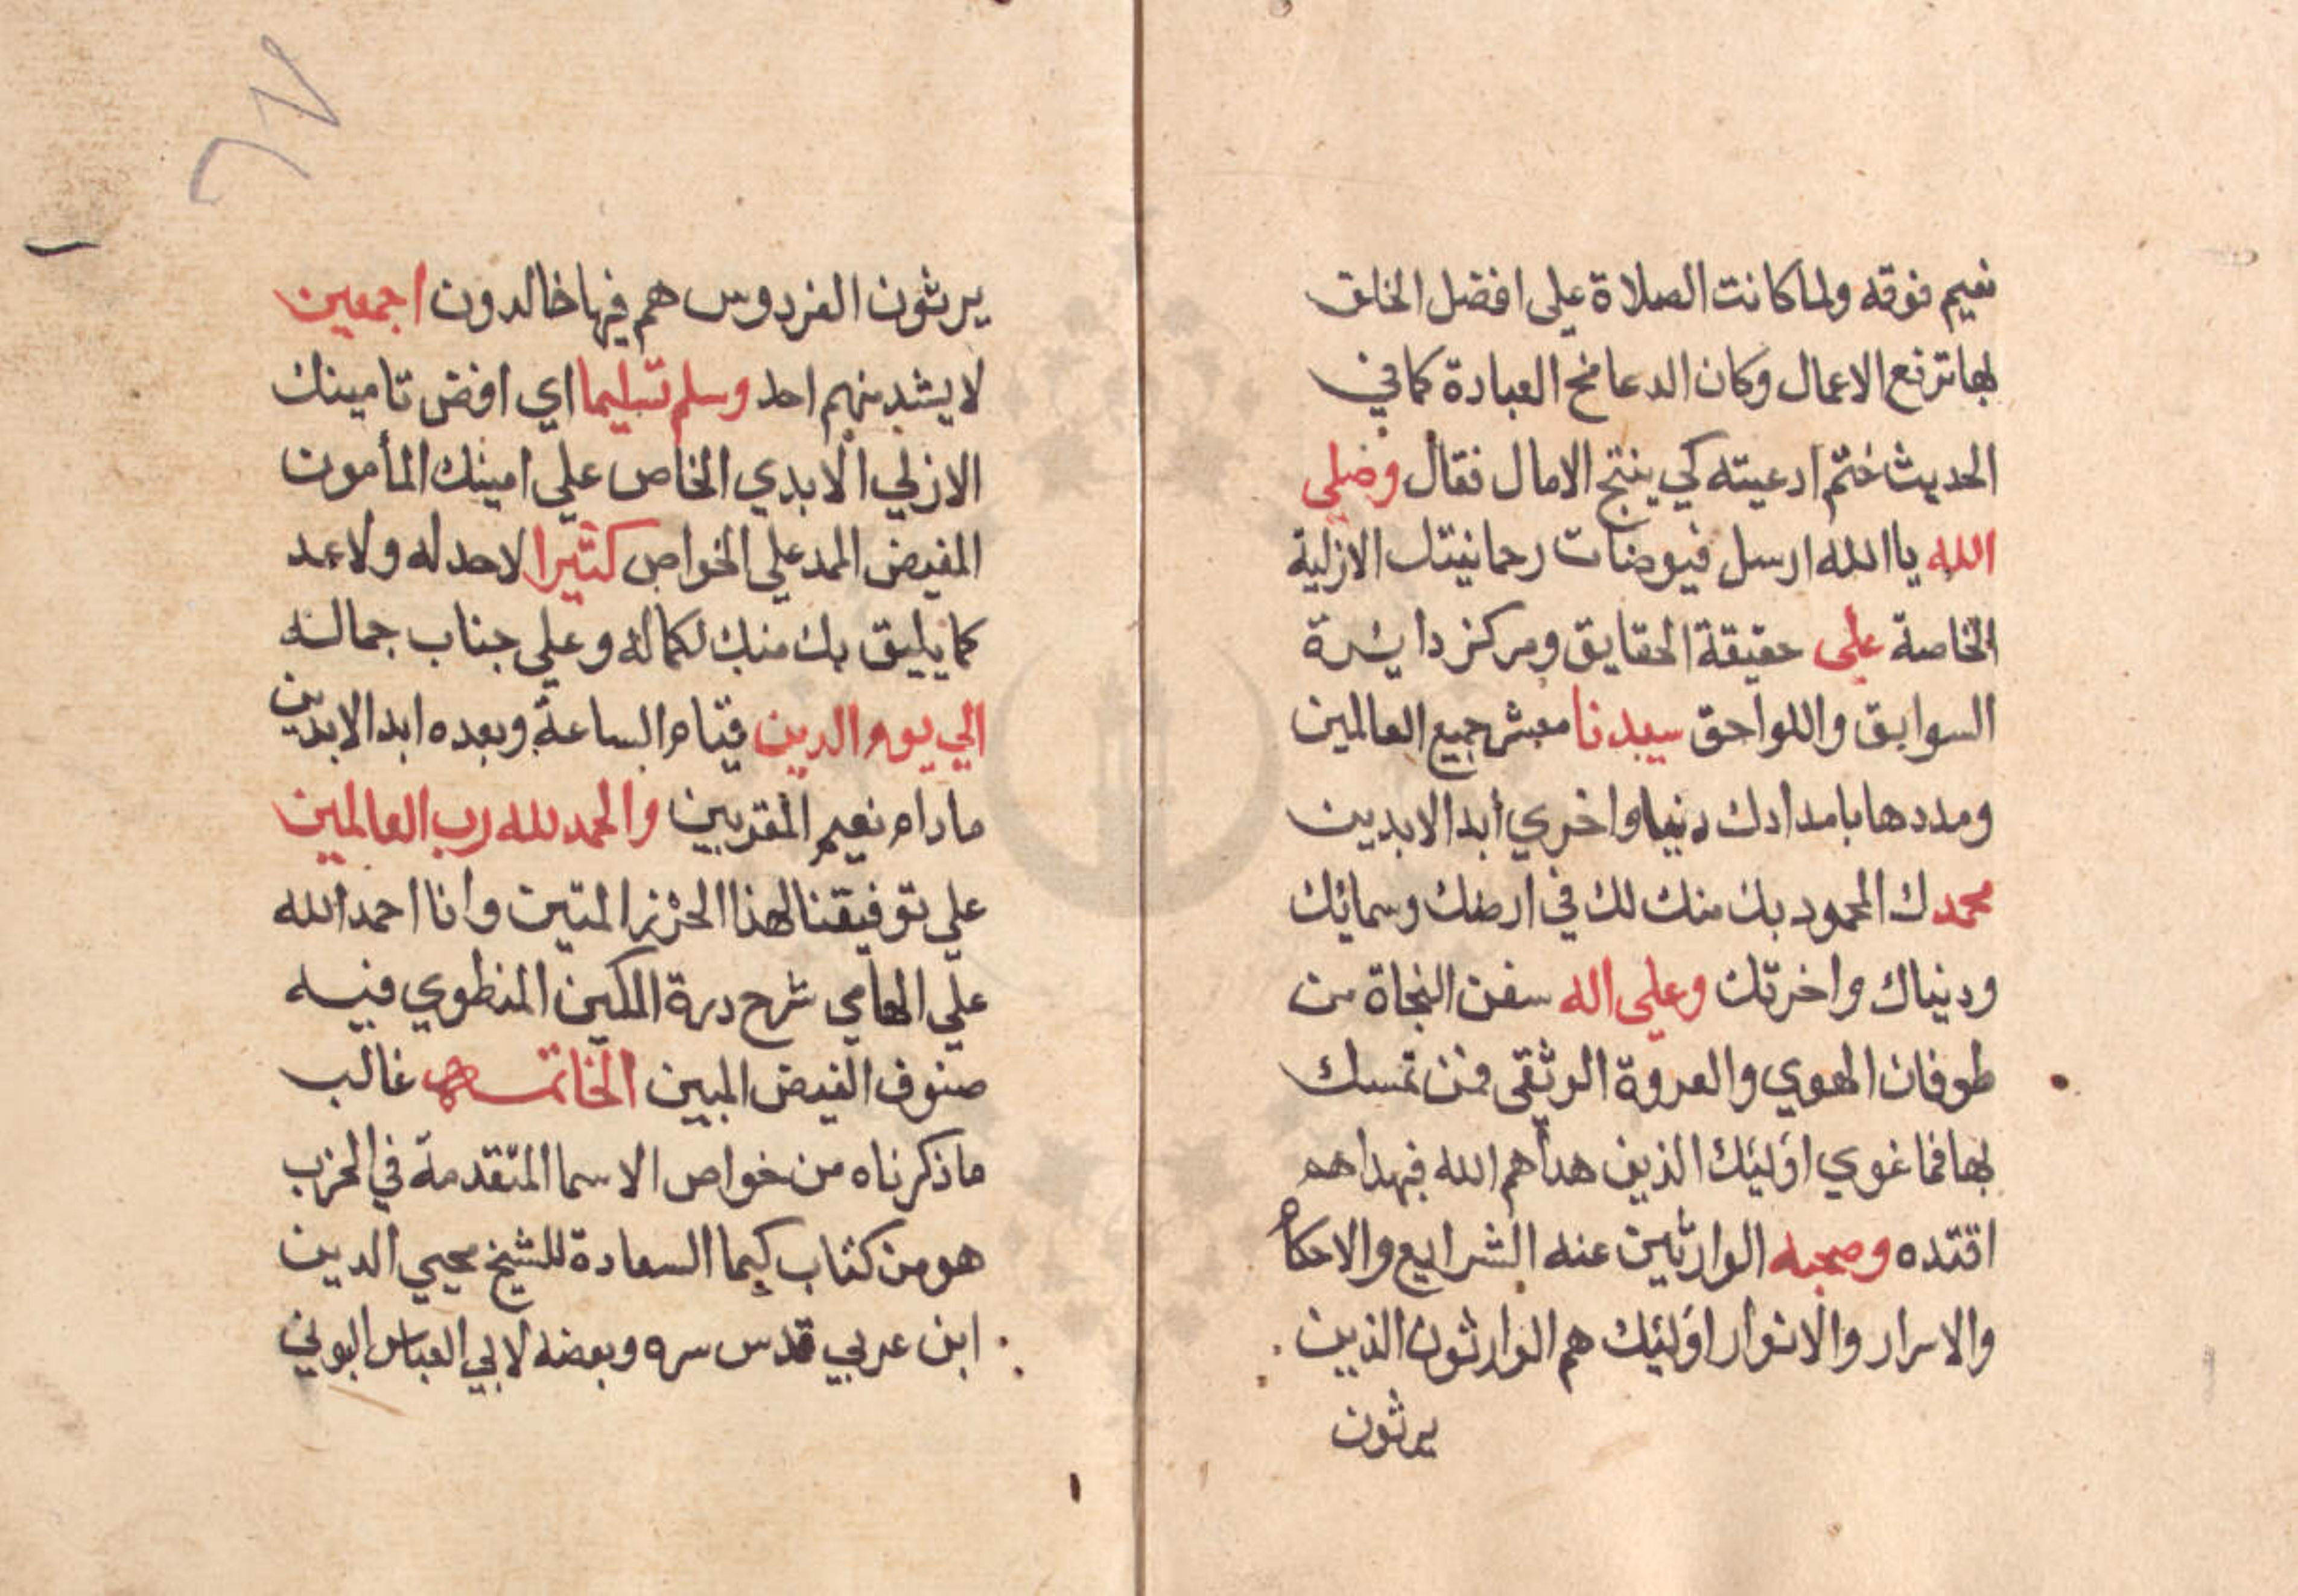 نعيم فوقه ولما كانت الصلاة على افضل الخلق
بها ترفع الاعمال وكان الدعا مخ العبادة كما في
الحديث ختم ادعيته كي ينتج الامال فقال وصلى
الله يا الله ارسل فيوضات رحمانيتك الازلية
الخاصة على حقيقة الحقايق ومركز دايرة
السوابق واللواحق سيدنا جميع العالمين
ومددها بامدادك دنيا واخري أبد الابدين
محمدك المحمود بك منك لك في ارضك وسمائك
ودنياك واخرتك وعلى اله سفن النجاة من
طوفان الهوي والعروة الوثقى فمن تمسك
بها فما غوي اوليك الذين هداهم الله فبهداهم
اقتده وصحبه الوارثين عنه الشرايع والاحكام
والاسرار والانوار اوليك هم الوارثون الذين
يرثون
يرثون الفردوس هم فيها خالدون اجمعين
لا يشد منهم احد وسلم تسليما اي افض تامينك
الازلي الابدي الخاص علي امينك المأمون
المفيض المد علي الخواص كثيرا لاحد له ولا عد
كما يليق بك منك لكماله وعلي جناب جماله
الي يوم الدين قيام الساعة وبعده ابد الابدين
ما دام نعيم المقربين والحمد لله رب العالمين
علي توفيقنا لهذا الحرز المتين وانا احمد الله
علي الهامي شرح درة المكين المنطوي فيه
صنوف الفيض المبين الخاتمه غالب
ما ذكرناه من خواص الاسما المتقدمة في الحزب
هو من كتاب كيما السعادة للشيخ محيي الدين
ابن عربي قدس سره وبعضه لابي العباس البوني